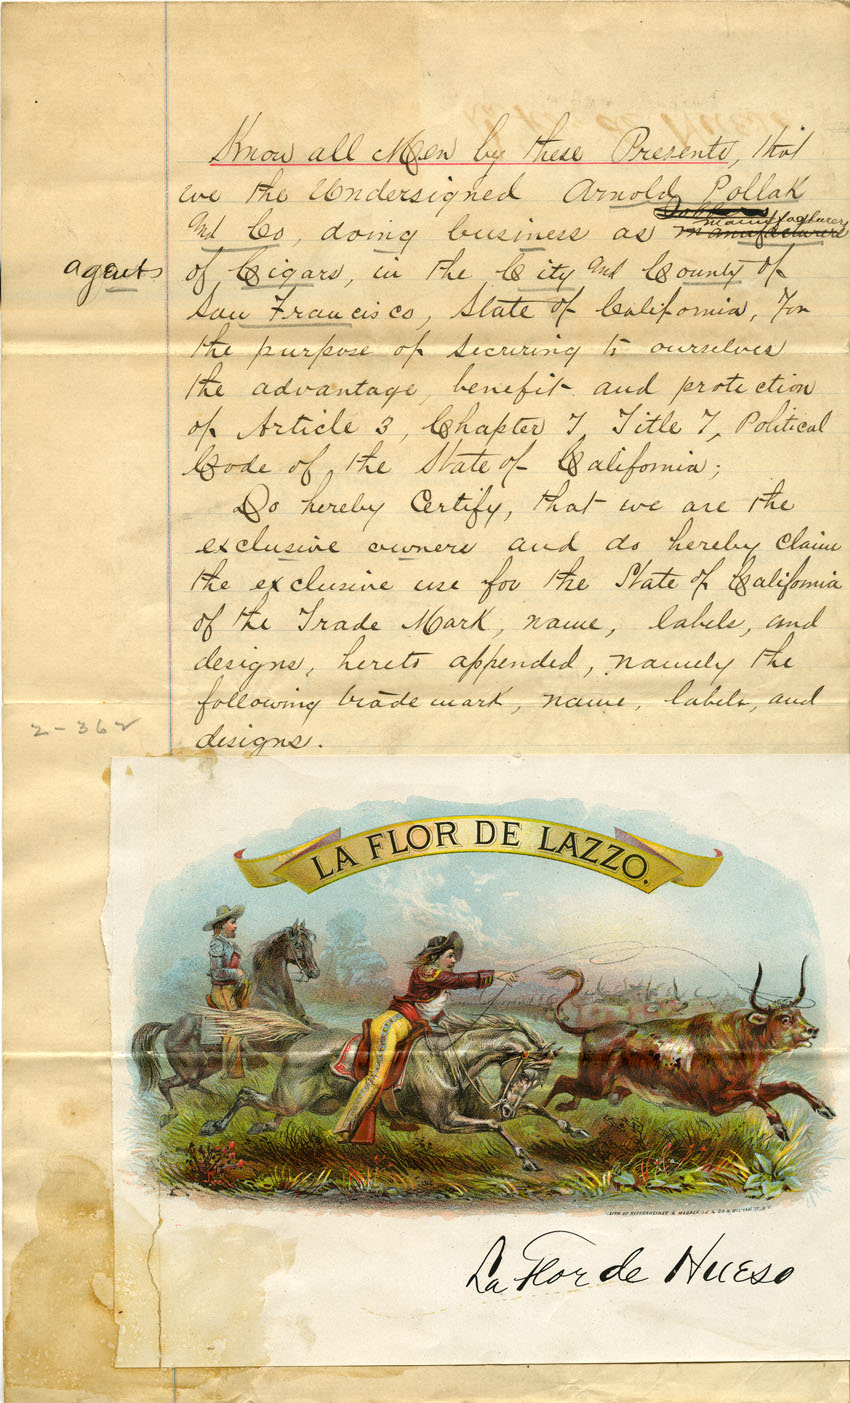 Know all Men by these Presents, that
we the Undersigned Arnold Pollak
And Co, doing business as manufacturers
agents
of Cigars, in the City and County of
San Francisco, State of California, For
the purpose of securing to ourselves
the advantage, benefit and protection
of Article 3, Chapter 7, Title 7, Political
Code of the State of California;
Do hereby Certify, that we are the
exclusive owners and do hereby claim
the exclusive use for the State of California
of the Trade Mark, name, labels, and
designs, hereto appended, namely the
following trade mark, name, labels, and
designs.
LA FLOR DE LAZZO.
La Flor de Hueso